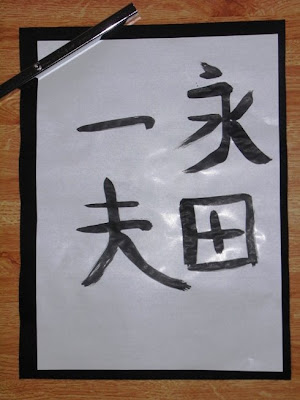 永田
一夫